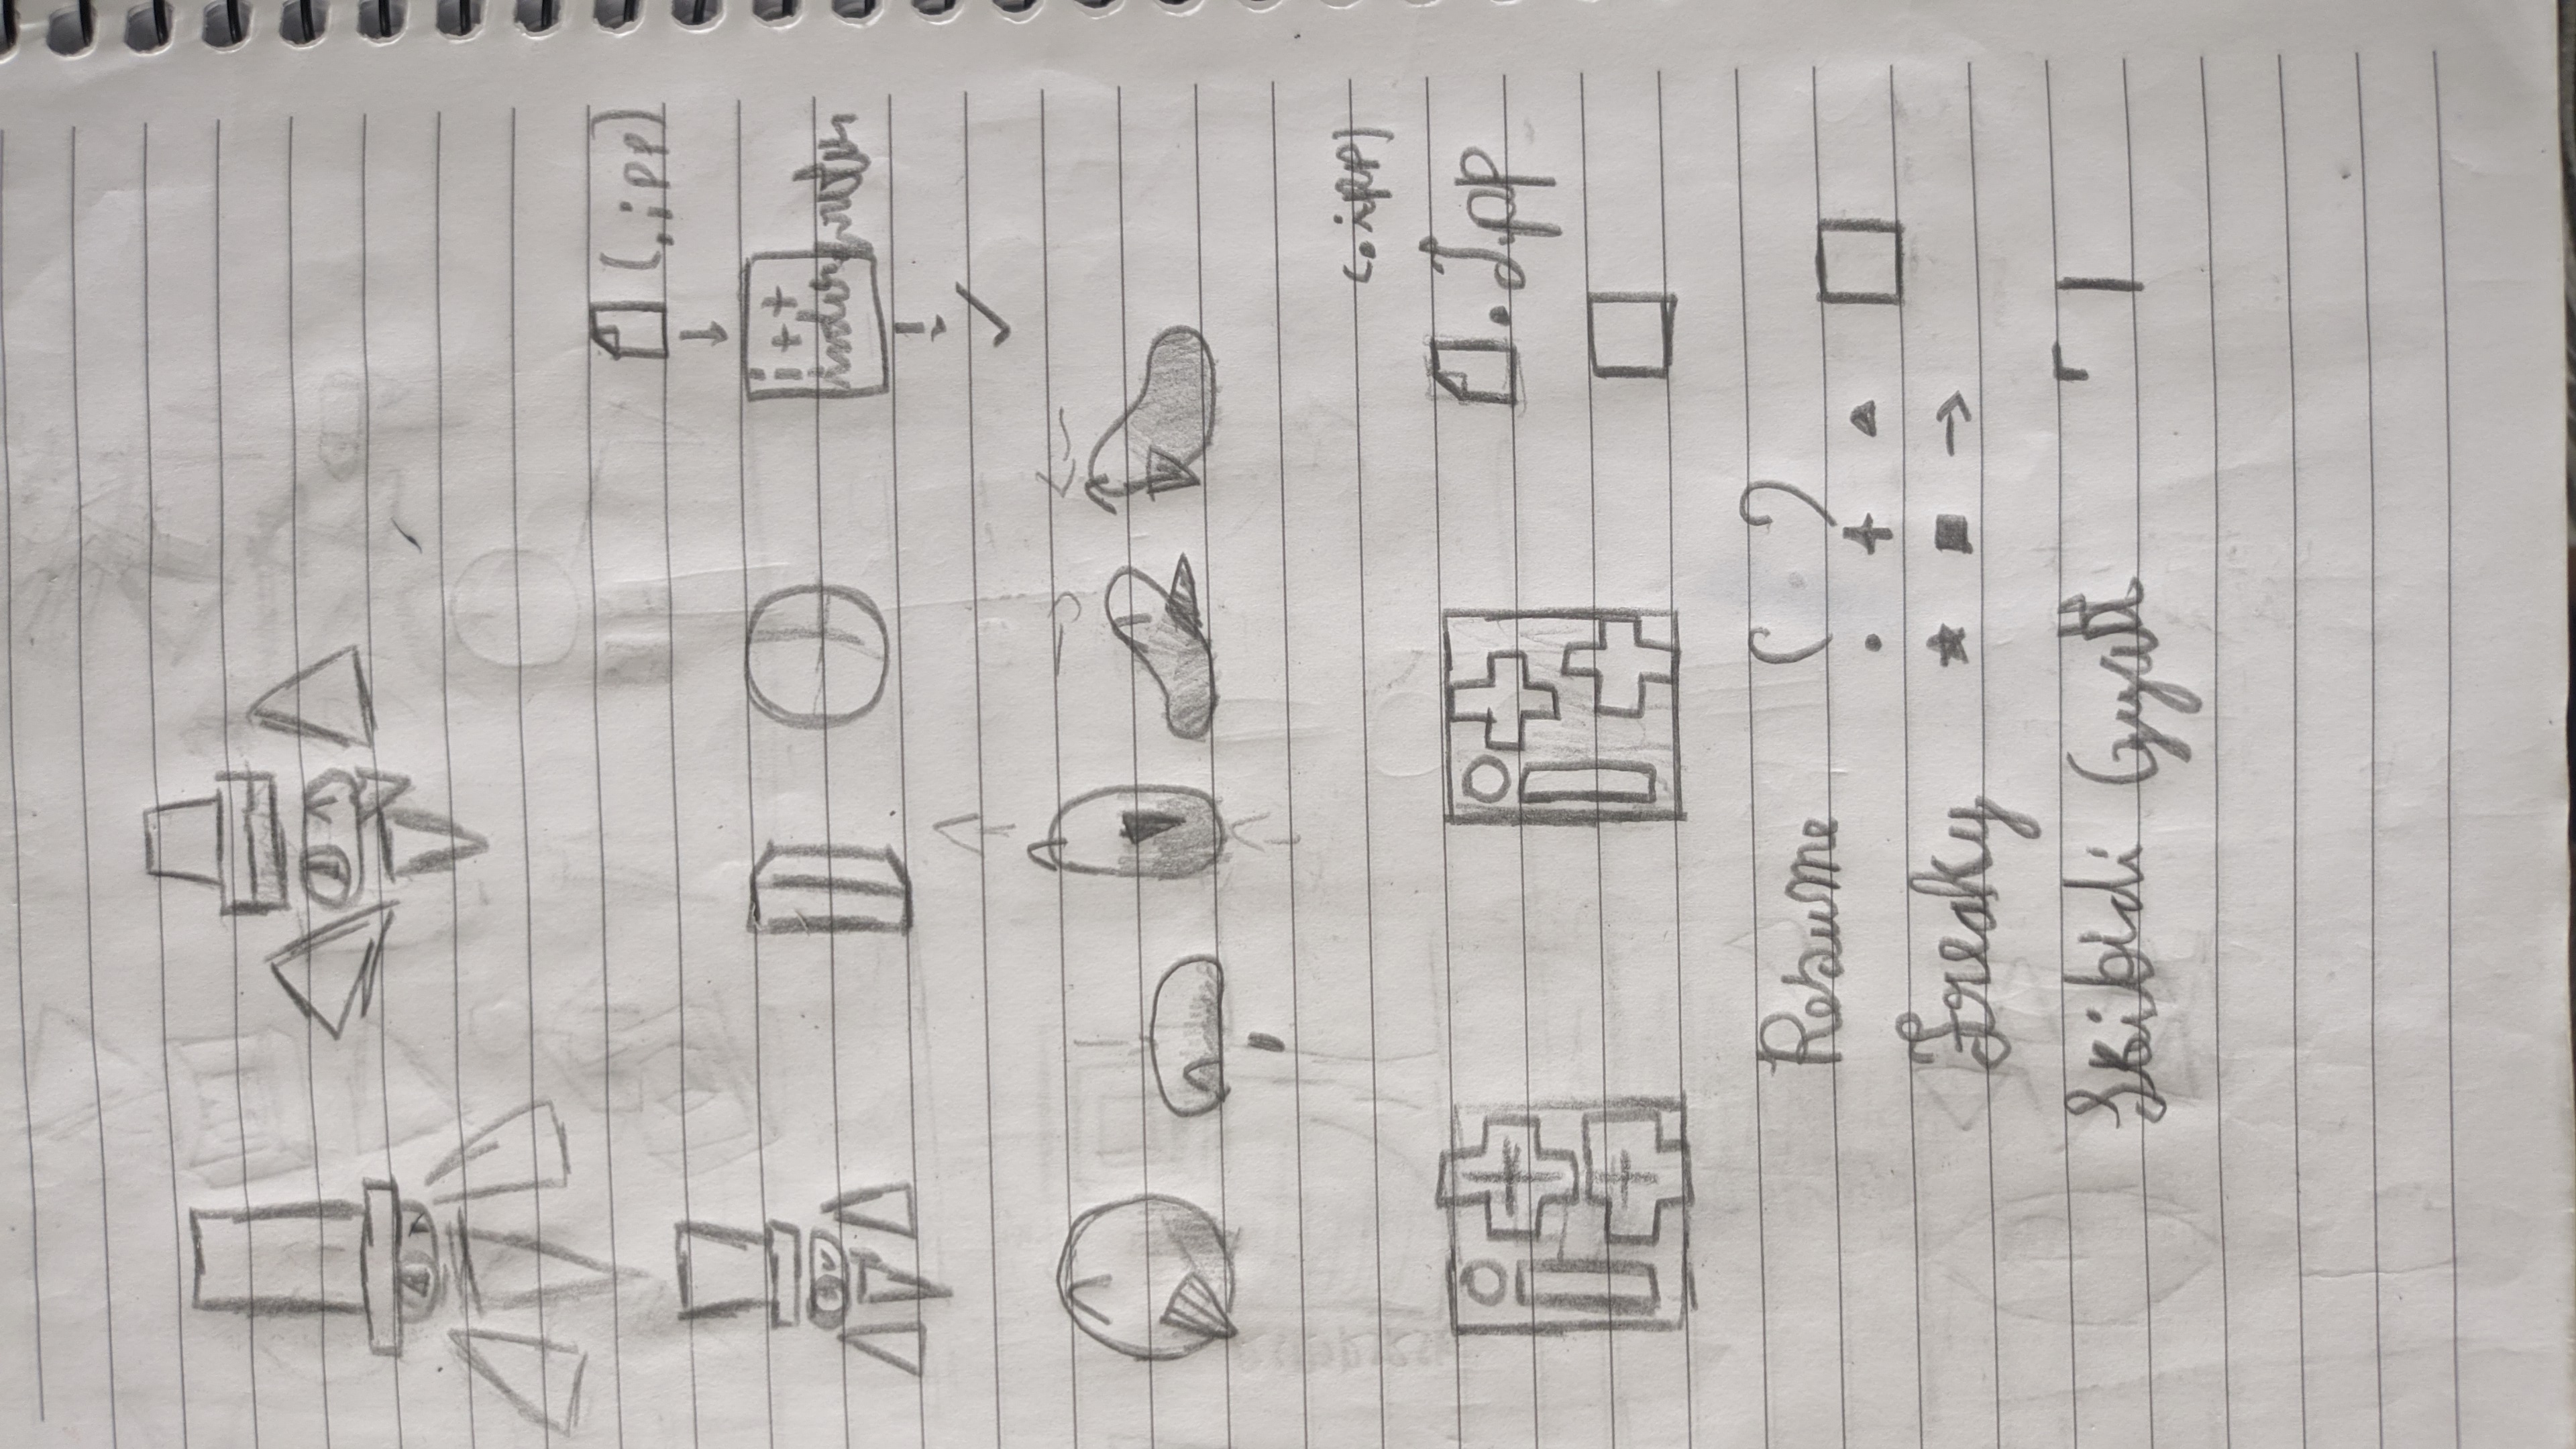 (.ipp)
i++
(.ipp)
.Ipp
(?
Resume
Freaky
Skibidi Gyatt